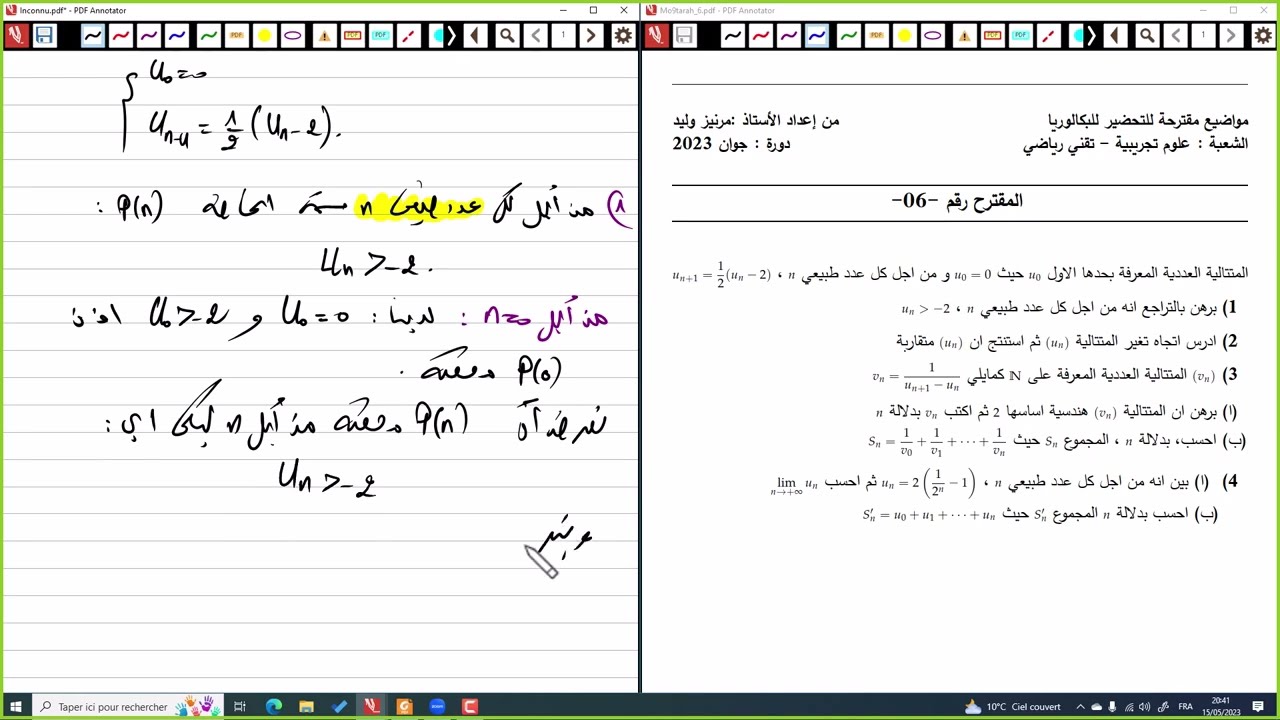 Inconnu.pdf* - PDF Annotator
U₀=0
Uₙ₊₁ = 1/2 (Uₙ - 2).
1) من أجل كل عدد طبيعي n نسمي الخاصية P(n) :
Uₙ > -2 .
من أجل n=0 : لدينا : U₀=0 و U₀>-2 اذن
P(0) محققة .
نفرض أن P(n) محققة من أجل n أي :
Uₙ > -2
Mo9tarah_6.pdf - PDF Annotator
مواضيع مقترحة للتحضير للبكالوريا من إعداد الأستاذ :مرنيز وليد
الشعبة : علوم تجريبية - تقني رياضي دورة : جوان 2023
المقترح رقم -06-
المتتالية العددية المعرفة بحدها الاول u₀ حيث u₀ = 0 و من اجل كل عدد طبيعي n ، uₙ₊₁ = 1/2(uₙ − 2)
1) برهن بالتراجع انه من اجل كل عدد طبيعي n ، uₙ > −2
2) ادرس اتجاه تغير المتتالية (uₙ) ثم استنتج ان (uₙ) متقاربة
3) (vₙ) المتتالية العددية المعرفة على ℕ كمايلي vₙ = 1/(uₙ₊₁ − uₙ)
(ا) برهن ان المتتالية (vₙ) هندسية اساسها 2 ثم اكتب vₙ بدلالة n
(ب) احسب، بدلالة n ، المجموع Sₙ حيث Sₙ = 1/v₀ + 1/v₁ + ··· + 1/vₙ
4) (ا) بين انه من اجل كل عدد طبيعي n ، uₙ = 2(1/2ⁿ − 1) ثم احسب lim uₙ n→+∞
(ب) احسب بدلالة n المجموع S′ₙ حيث S′ₙ = u₀ + u₁ + ··· + uₙ
Taper ici pour rechercher
10°C Ciel couvert
FRA
20:41
15/05/2023